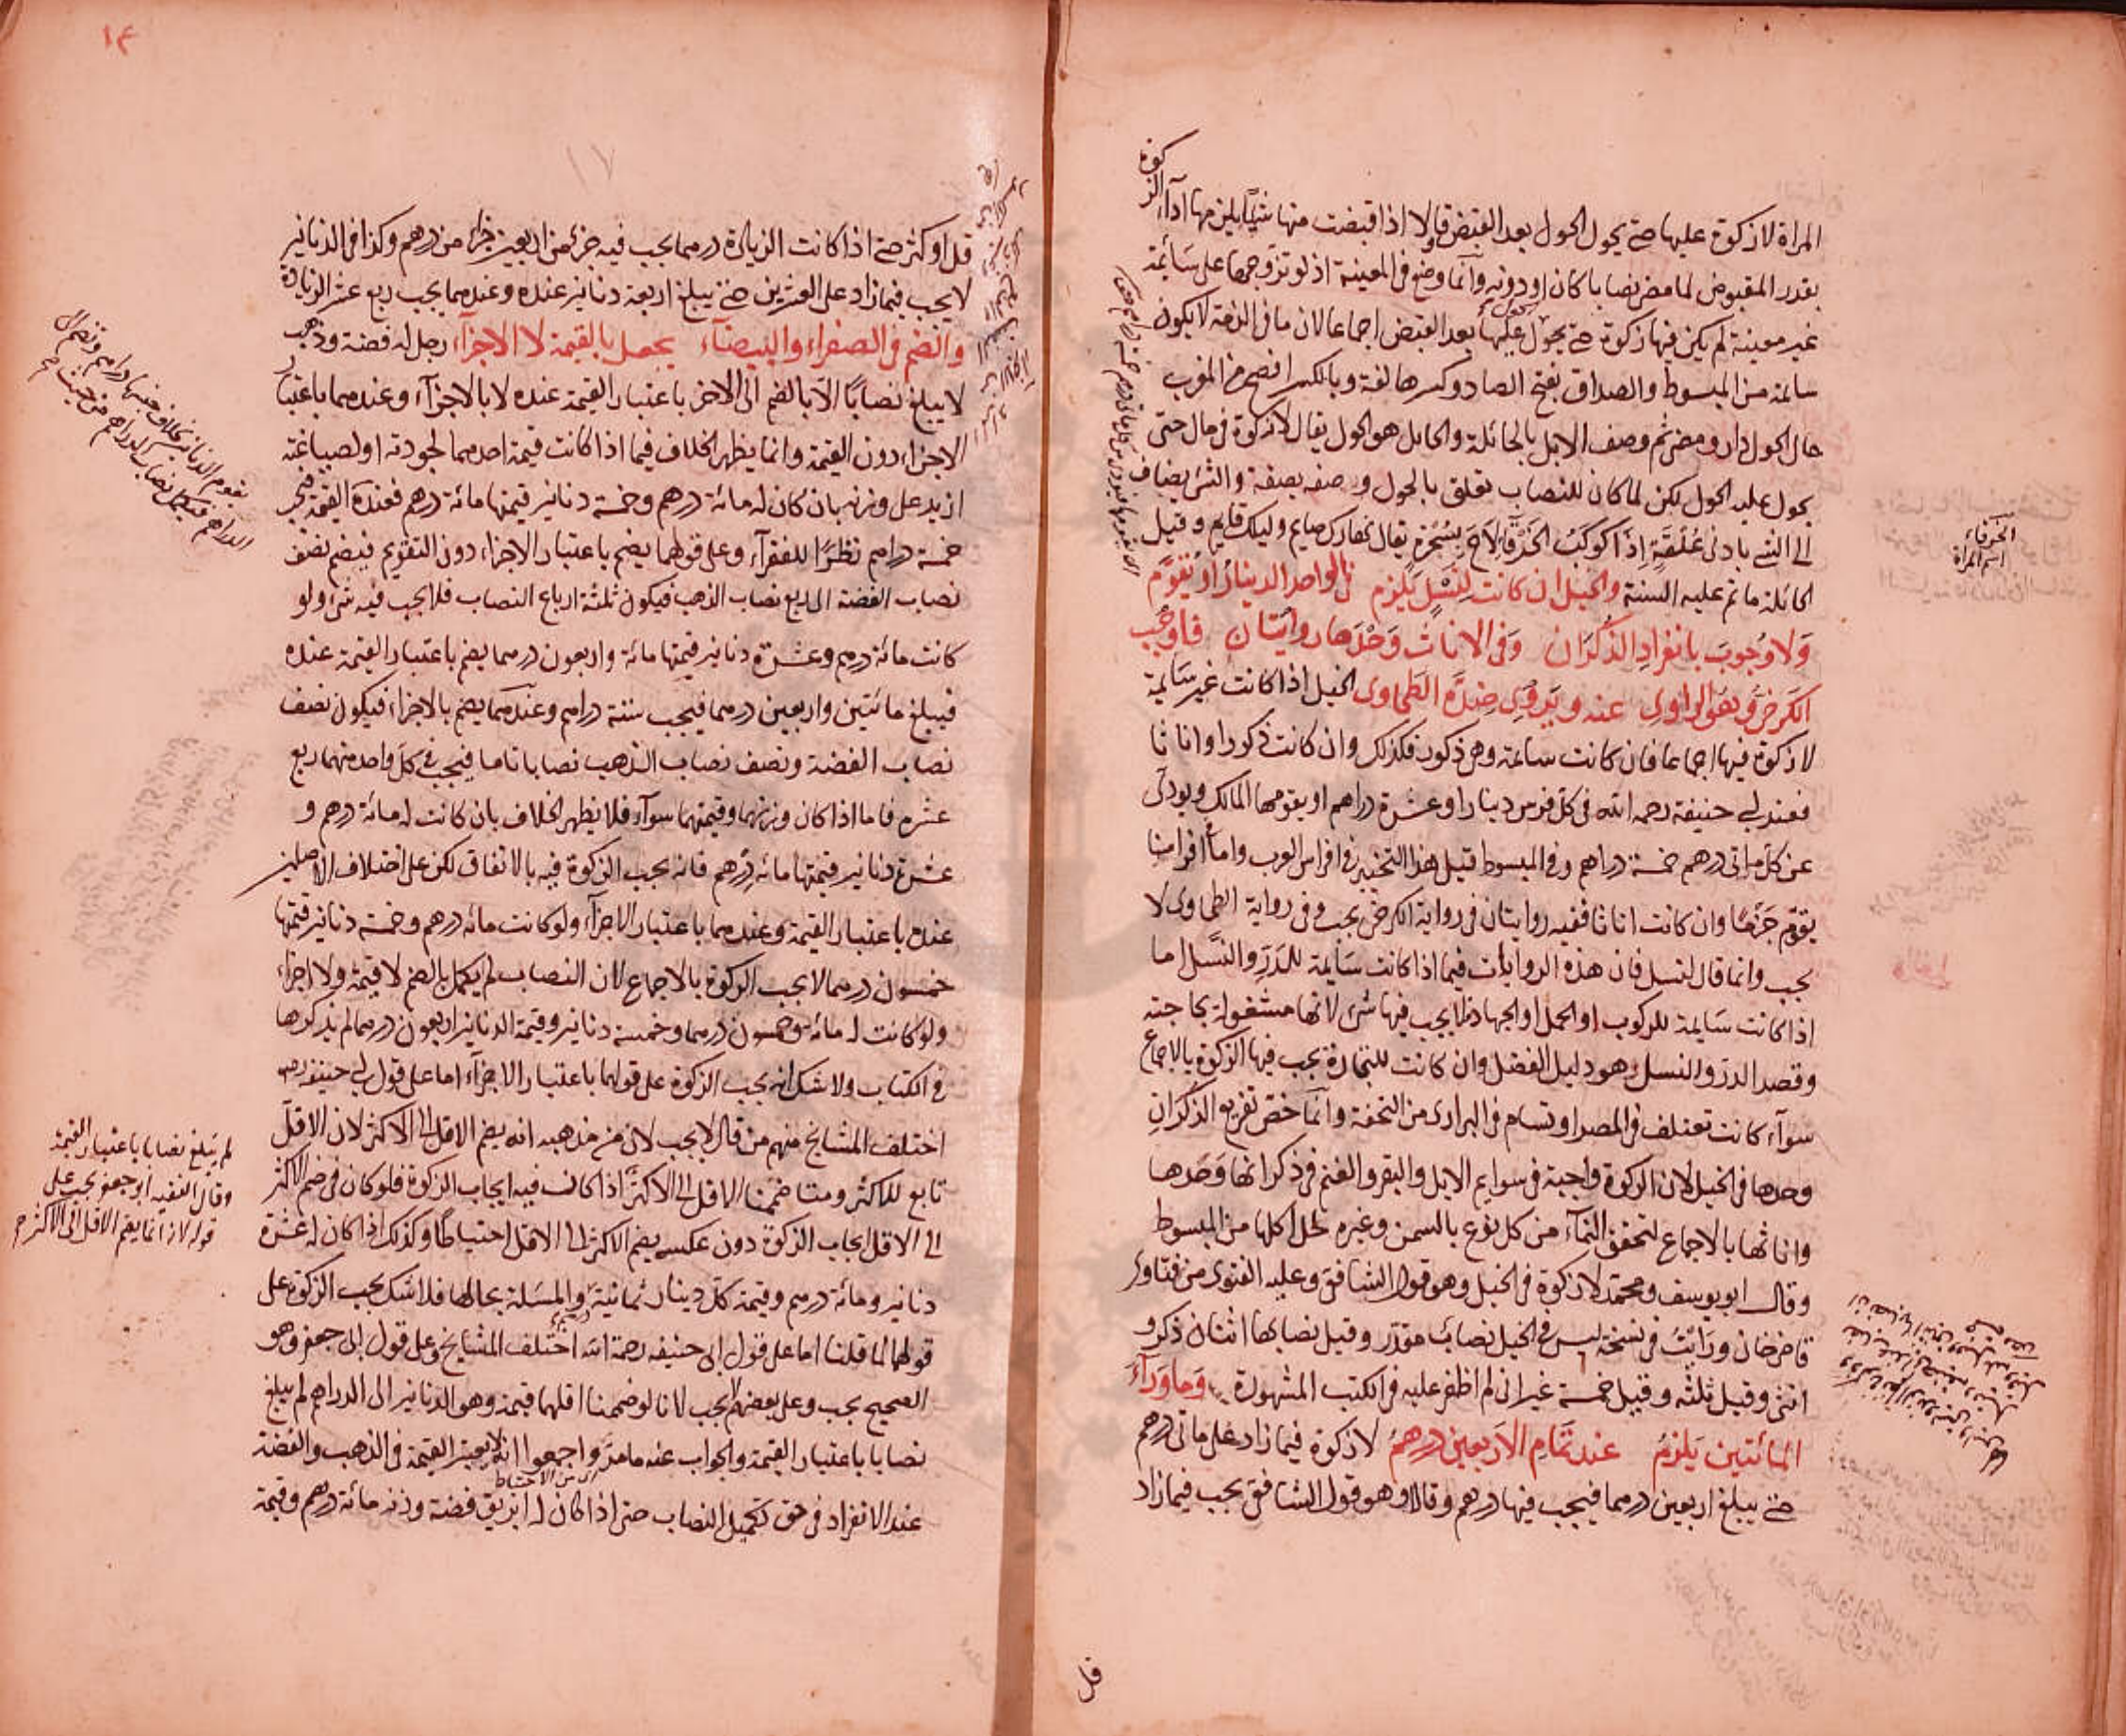 المراة لا زكوة عليها حتى يحول الحول بعد القبض وقالا اذا قبضت منها شيئا يلزمها اداء الزكوة
بقدر المقبوض لما مضى نصابا كان او دونه وانما وضع فى المعينة اذ لو تزوجها على سائمة
غير معينة لم يكن فيها زكوة حتى يحول عليها الحول بعد القبض اجماعا لان ما فى الذمة لا يكون
سائمة من المبسوط والصداق بفتح الصاد وكسرها لغة وبالكسر افصح من المغرب
حال الحول دار ومضى ثم وصف الابل بالحائلة والحايل هو الحول يقال لا زكوة فى مال حتى
يحول عليه الحول لكن لما كان للنصاب تعلق بالحول وصفه بصفة والشئ يضاف
الى الشئ بادنى علقة اذا كوكب الخرقاء لاح بسحرة يقال نهارك صايم وليلك قايم وقيل
الحائلة ما تم عليه السنة والخيل ان كانت لنسل يلزم فى الواحد الدينار او يقوم
ولا وجوب بانفراد الذكران وفى الاناث وحدها روايتان فاوجب
الكرخى وهو الراوى عنه ويروى ضده الطحاوى الخيل اذا كانت غير سائمة
لا زكوة فيها اجماعا فان كانت سائمة وهى ذكور فكذلك وان كانت ذكورا واناثا
فعند ابى حنيفة رحمه الله فى كل فرس دينار او عشرة دراهم او يقومها المالك ويودى
عن كل ماتى درهم خمسة دراهم وفى المبسوط قيل هذا التخيير فى افراس العرب واما افراسنا
يقوم جزما وان كانت اناثا ففيه روايتان فى رواية الكرخى يجب وفى رواية الطحاوى لا
يجب وانما قال لنسل فان هذه الروايات فيما اذا كانت سايمة للدر والنسل اما
اذا كانت سايمة للركوب او الحمل او الجهاد فلا يجب فيها شئ لانها مشغولة بحاجته
وقصد الدر والنسل هو دليل الفضل وان كانت للتجارة يجب فيها الزكوة بالاجماع
سواء كانت تعتلف فى المصر او تسام فى البرارى من التحفة وانما خص تفريع الذكران
وحدها فى الخيل لان الزكوة واجبة فى سوايم الابل والبقر والغنم فى ذكرانها وحدها
واناثها بالاجماع لتحقق النماء من كل نوع بالسمن وغيره لحل اكلها من المبسوط
وقال ابو يوسف ومحمد لا زكوة فى الخيل وهو قول الشافعى وعليه الفتوى من فتاوى
قاضى خان ورايت فى نسخة ليس فى الخيل نصاب مقدر وقيل نصابها اثنان ذكر و
انثى وقيل ثلثه وقيل خمسة غير انى لم اظفر عليه فى الكتب المشهورة وما وراء
المائتين يلزم عند تمام الاربعين درهم لا زكوة فيما زاد على ماتى درهم
حتى يبلغ اربعين درهما فيجب فيها درهم وقالا وهو قول الشافعى يجب فيما زاد
قل
الخرقاء
اسم المراة
١٤
١٧
قل او كثر حتى اذا كانت الزيادة درهما يجب فيه جزء من اربعين جزا من درهم وكذا فى الدنانير
لا يجب فيما زاد على العشرين حتى يبلغ اربعة دنانير عنده وعندهما يجب ربع عشر الزيادة
والضم فى الصفراء والبيضاء يعمل بالقيمة لا الاجزاء رجل له فضة وذهب
لا يبلغ نصابا الا بالضم الى الاخر باعتبار القيمة عنده لا بالاجزاء وعندهما باعتبار
الاجزاء دون القيمة وانما يظهر الخلاف فيما اذا كانت قيمة احدهما لجودته او لصياغته
ازيد على وزنه بان كان له مائة درهم وخمسة دنانير قيمتها مائة درهم فعنده القيمة فيجب
خمسة دراهم نظرا للفقراء وعلى قولهما يضم باعتبار الاجزاء دون التقويم فيضم نصف
نصاب الفضة الى ربع نصاب الذهب فيكون ثلثة ارباع النصاب فلا يجب فيه شئ ولو
كانت مائة درهم وعشرة دنانير قيمتها مائة واربعون درهما يضم باعتبار القيمة عنده
فيبلغ مائتين واربعين درهما فيجب ستة دراهم وعندهما يضم بالاجزاء فيكون نصف
نصاب الفضة ونصف نصاب الذهب نصابا تاما فيجب فى كل واحد منهما ربع
عشره فاما اذا كان وزنهما وقيمتهما سواء فلا يظهر الخلاف بان كانت له مائة درهم و
عشرة دنانير قيمتها مائة درهم فانه يجب الزكوة فيه بالاتفاق لكن على اختلاف الاصلين
عنده باعتبار القيمة وعندهما باعتبار الاجزاء ولو كانت مائة درهم وخمسة دنانير قيمتها
خمسون درهما لا يجب الزكوة بالاجماع لان النصاب لم يكمل بالضم لا قيمة ولا اجزاء
ولو كانت له مائة وخمسون درهما وخمسة دنانير وقيمة الدنانير اربعون درهما لم يذكرها
فى الكتاب ولا شك انه يجب الزكوة على قولهما باعتبار الاجزاء اما على قول ابى حنيفة رحمه
اختلف المشايخ منهم من قال لا يجب لان من مذهبه انه يضم الاقل الى الاكثر لان الاقل
تابع للاكثر ومتا ضممنا الاقل الى الاكثر اذا كان فيه ايجاب الزكوة فلو كان فى ضم الاكثر
الى الاقل ايجاب الزكوة دون عكسه يضم الاكثر الى الاقل احتياطا وكذلك اذا كان له عشرة
دنانير ومائة درهم وقيمة كل دينار ثمانية والمسئلة بحالها فلا شك يجب الزكوة على
قولهما لما قلنا اما على قول ابى حنيفه رحمة الله اختلف المشايخ وعلى قول ابى جعفر وهو
الصحيح يجب وعلى بعضهم لا يجب لانا لو ضممنا اقلهما قيمة وهو الدنانير الى الدراهم لم يبلغ
نصابا باعتبار القيمة والجواب عنه ما مر واجمعوا انه لا يعتبر القيمة فى الذهب والفضة
اى من الاحتياط
عند الانفراد فى حق تكميل النصاب حتى اذا كان له ابريق فضة وزنه مائة درهم وقيمة
لم يبلغ نصابا باعتبار القيمة
وقال الفقيه ابو جعفر يجب على
قوله لانه انما يضم الاقل الى الاكثر